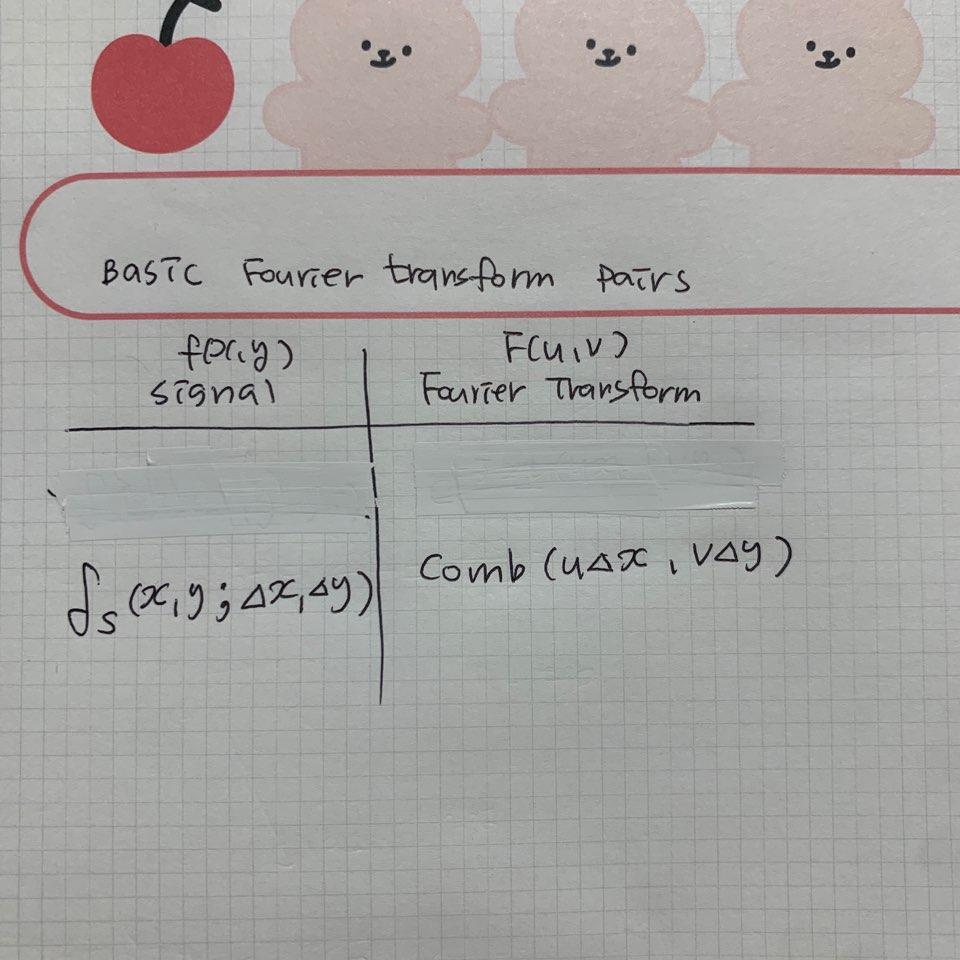 Basic Fourier transform pairs
f(x,y)
signal
F(u,v)
Fourier Transform
δs(x,y; Δx,Δy)
Comb (uΔx, vΔy)